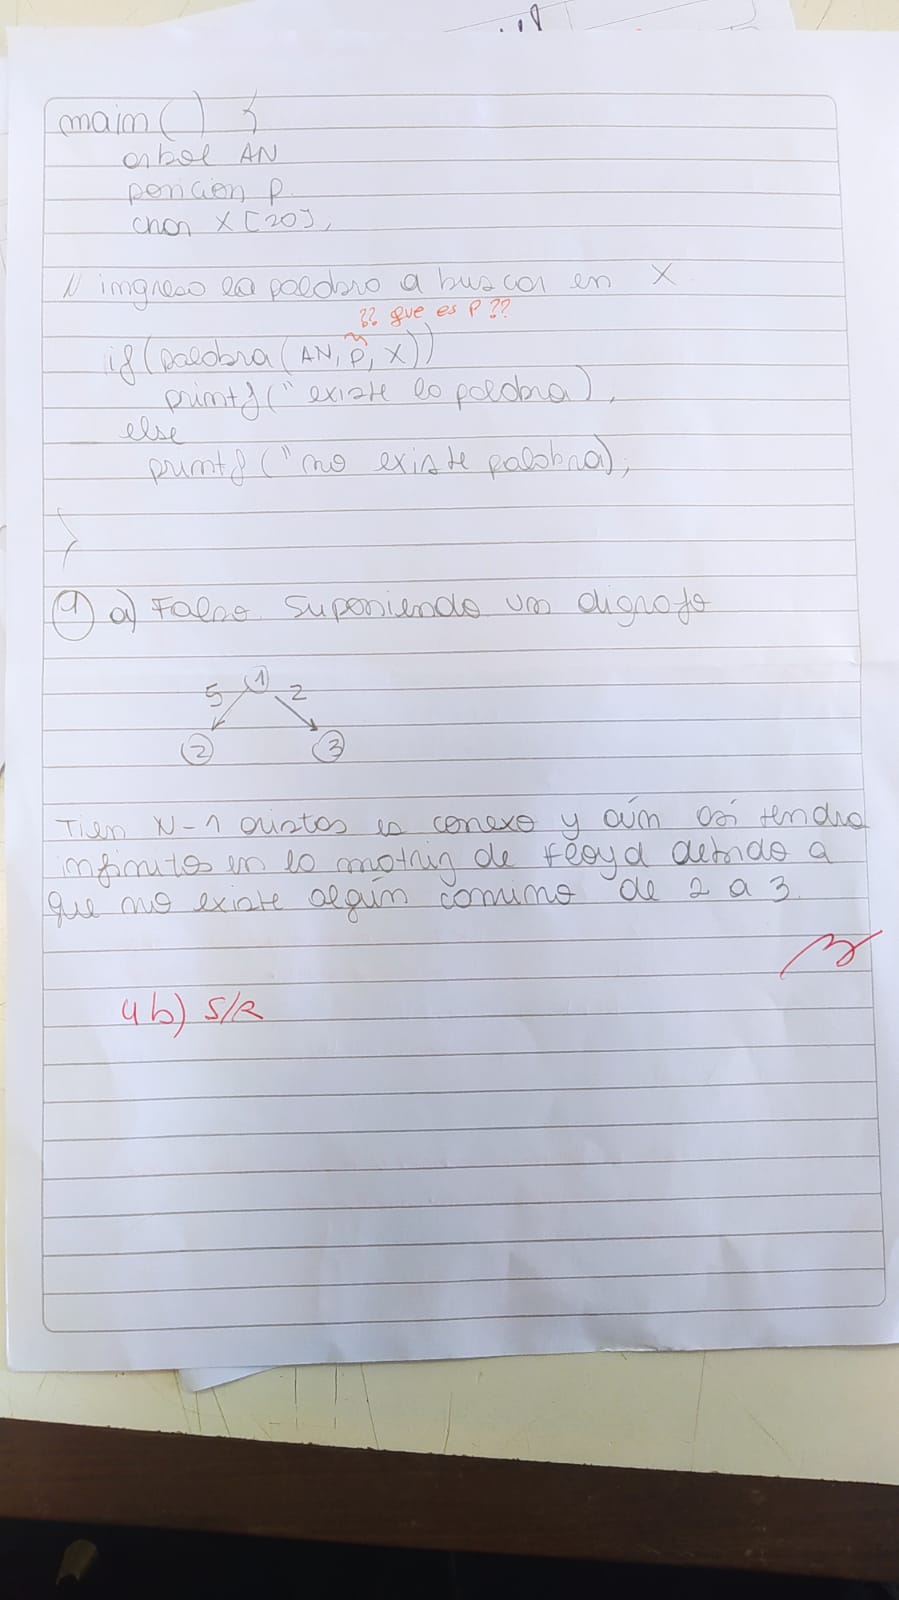 main() {
arbol AN
posicion P
char X[20];
// ingreso la palabra a buscar en X
?? que es P ??
if(palabra(AN, P, X))
printf("existe la palabra),
else
printf("no existe palabra);
}
4) a) Falso. Suponiendo un digrafo
1
5 2
2 3
Tien N-1 aristas es conexo y aún así tendra
infinitos en la matriz de Floyd debido a
que no existe algún camino de 2 a 3.
4b) S/R